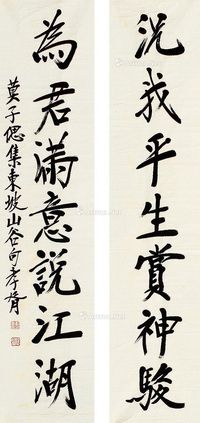 況我平生賞神駿
為君滿意說江湖
莫子偲集東坡山谷句孝胥